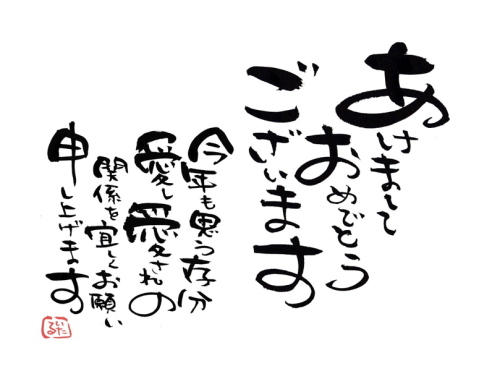 あけまして
おめでとう
ございます
今年も思う存分
愛し愛されの
関係を宜しくお願い
申し上げます